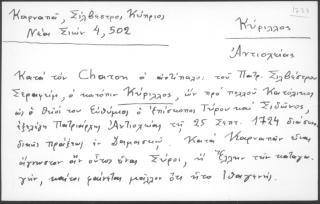 1724
Καρναπᾶ, Σίλβεστρος Κύπριος
Νέα Σιών 4, 502
Κύριλλος
Ἀντιοχείας
Κατὰ τὸν Charon ὁ ἀντίπαλος τοῦ Πατρ. Σιλβέστρου
Σεραφείμ, ὁ κατόπιν Κύριλλος, ὢν πρὸ πολλοῦ Κατόλικος
ὡς ὁ θεῖός του Εὐθύμιος ὁ ἐπίσκοπος Τύρου καὶ Σιδῶνος,
ἐξελέγη Πατριάρχης Ἀντιοχείας τῇ 25 Σεπτ. 1724 διὰ
πράξεως ἐν Δαμασκῷ. Κατὰ Καρναπᾶν εἶναι
ἄγνωστον ἂν οὗτος εἶναι Σύρος, ἢ Ἕλλην τὴν καταγω
γήν, καίτοι φαίνεται μᾶλλον ὅτι ἦτο ἰθαγενής.